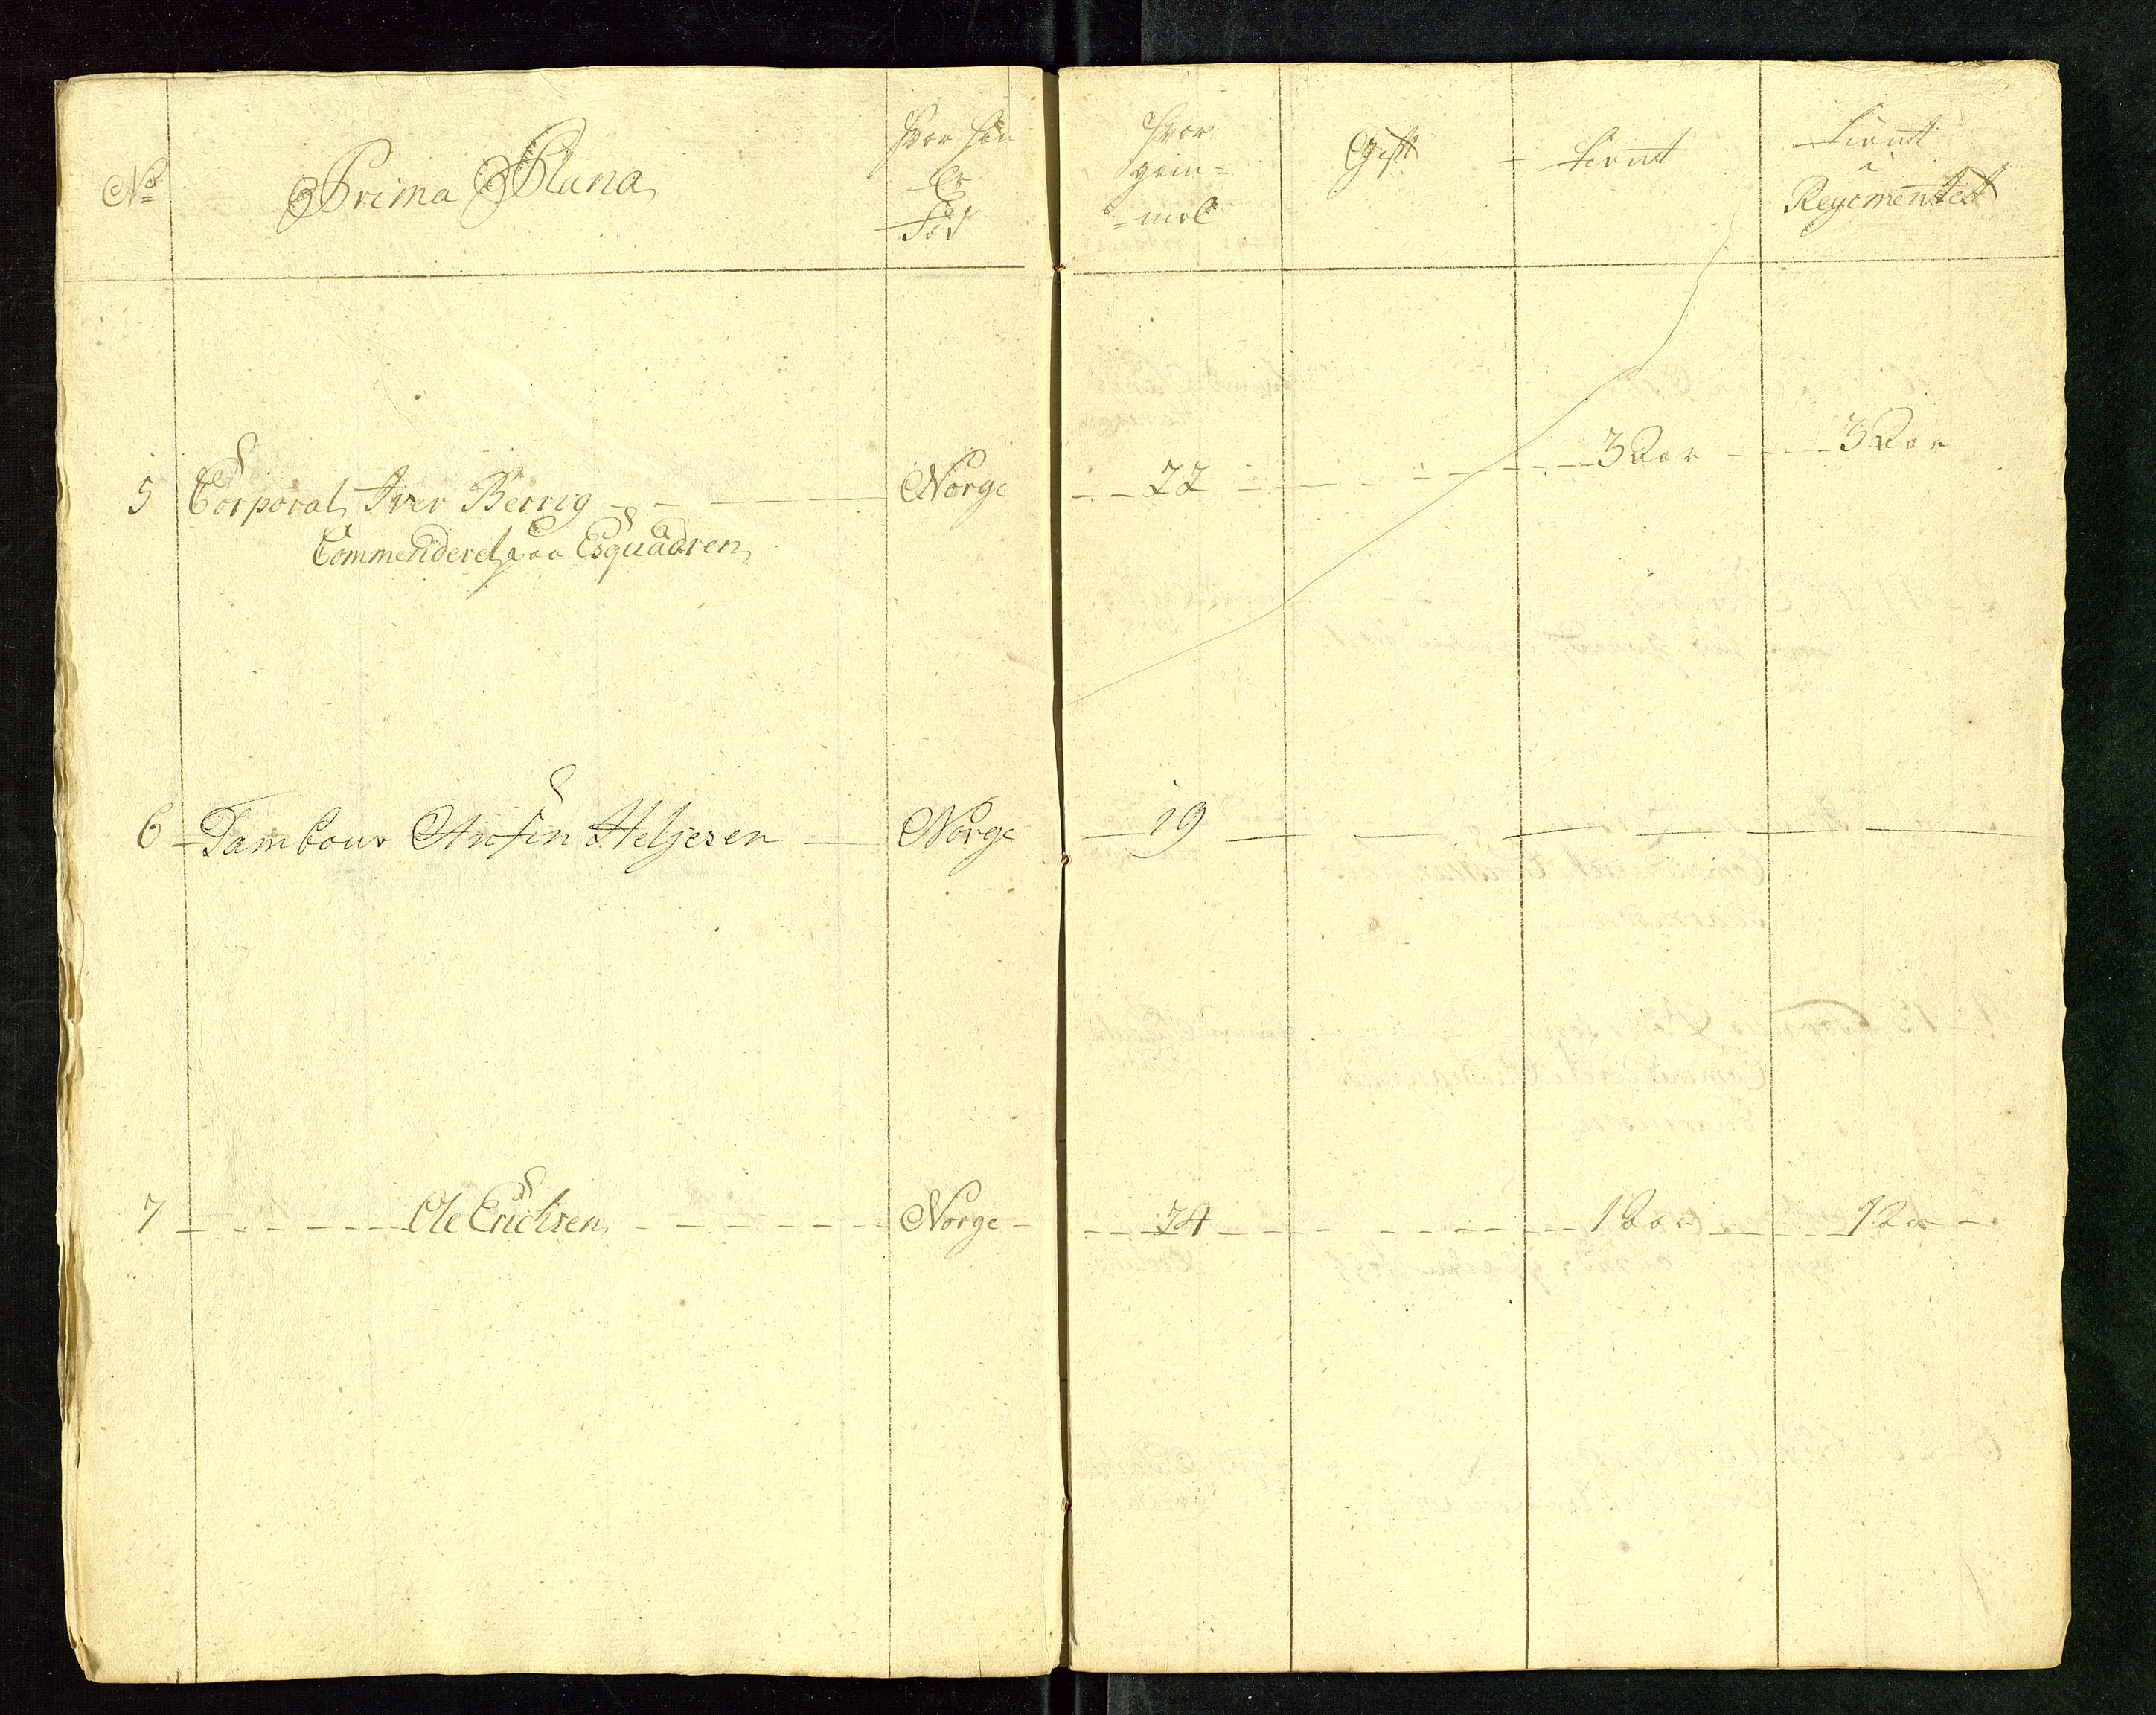 No
Prima Plana
Hvor han
Er
Fød
Hvor
gam=
=mel
Gift
Tient
Tient
i
Regimentet
5 Corporal Iver Berrig Norge 22 3 Aar 3 Aar
Commenderet paa Esquadren
6 Tambour Anfin Heljesen Norge 19
7 Ole Erichsen Norge 24 1 Aar 1 Aar